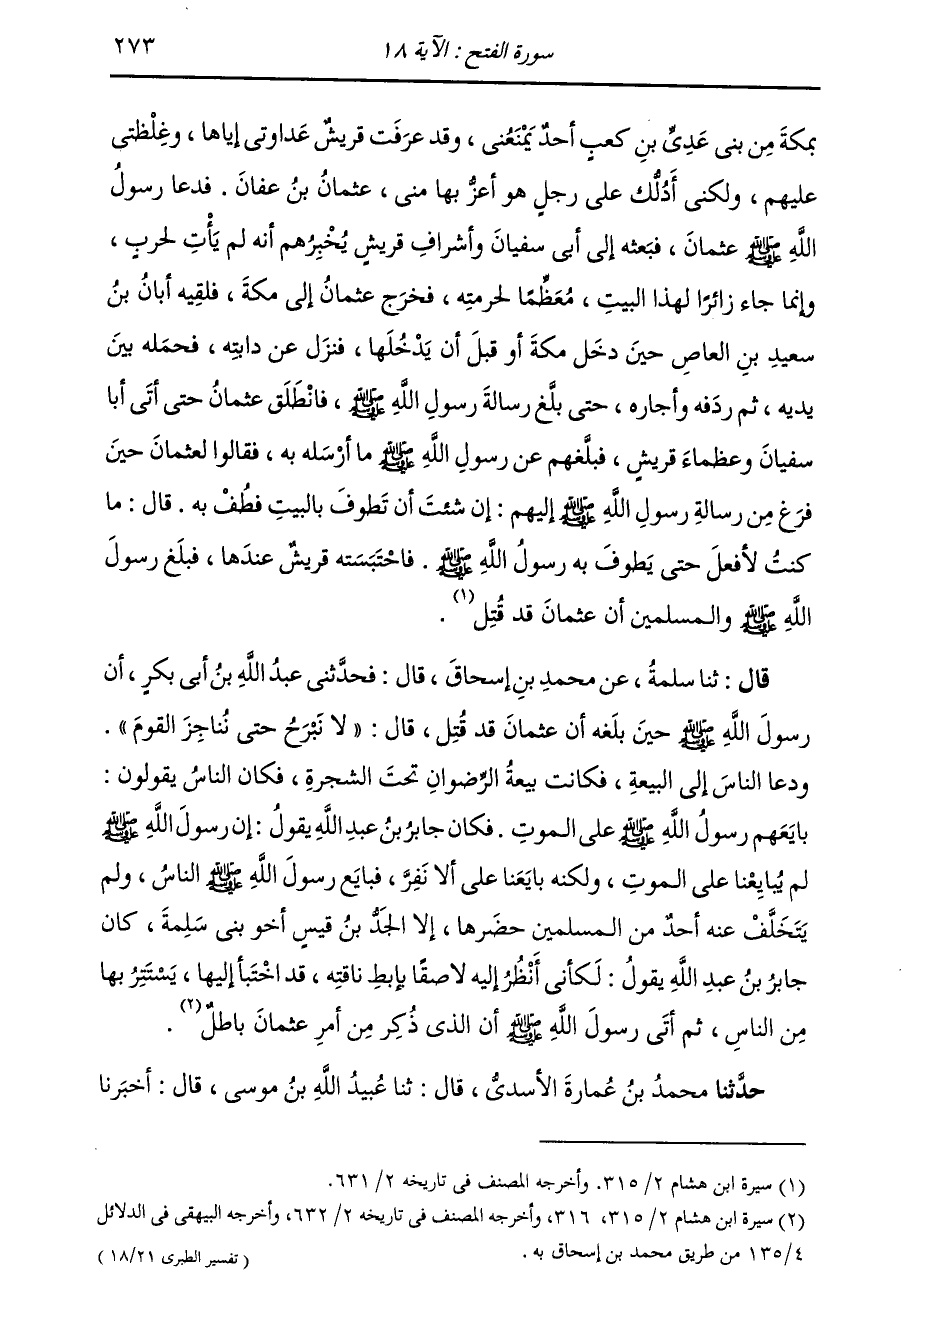 سورة الفتح : الآية ١٨ ٢٧٣
بمكةَ مِن بنى عَدِىِّ بنِ كعبٍ أحدٌ يَمْنَعُنى ، وقد عرَفَت قريشٌ عَداوتى إياها ، وغِلْظتى
عليهم ، ولكنى أَدُلُّك على رجلٍ هو أعزُّ بها منى ، عثمانُ بنُ عفانَ . فدعا رسولُ
اللَّهِ ﷺ عثمانَ ، فبَعثه إلى أبى سفيانَ وأشرافِ قريشٍ يُخْبِرُهم أنه لم يَأْتِ لحربٍ ،
وإنما جاء زائرًا لهذا البيتِ ، مُعَظِّمًا لحرمتِه ، فخرَج عثمانُ إلى مكةَ ، فلقِيه أبانُ بنُ
سعيدِ بنِ العاصِ حينَ دخَل مكةَ أو قبلَ أن يَدْخُلَها ، فنزَل عن دابتِه ، فحمَله بينَ
يديه ، ثم ردَفه وأجاره ، حتى بلَّغ رسالةَ رسولِ اللَّهِ ﷺ ، فانْطَلَق عثمانُ حتى أتَى أبا
سفيانَ وعظماءَ قريشٍ ، فبلَّغهم عن رسولِ اللَّهِ ﷺ ما أرْسَله به ، فقالوا لعثمانَ حينَ
فرَغ مِن رسالةِ رسولِ اللَّهِ ﷺ إليهم : إن شئتَ أن تَطوفَ بالبيتِ فطُفْ به . قال : ما
كنتُ لأفعلَ حتى يَطوفَ به رسولُ اللَّهِ ﷺ . فاحْتَبَسَته قريشٌ عندَها ، فبلَغ رسولَ
اللَّهِ ﷺ والمسلمين أن عثمانَ قد قُتِل(١) .
قال : ثنا سلمةُ ، عن محمدِ بنِ إسحاقَ ، قال : فحدَّثنى عبدُ اللَّهِ بنُ أبى بكرٍ ، أن
رسولَ اللَّهِ ﷺ حينَ بلَغه أن عثمانَ قد قُتِل ، قال : « لا نَبْرَحُ حتى نُناجِزَ القومَ » .
ودعا الناسَ إلى البيعةِ ، فكانت بيعةُ الرِّضوانِ تحتَ الشجرةِ ، فكان الناسُ يقولون :
بايَعَهم رسولُ اللَّهِ ﷺ على الموتِ . فكان جابرُ بنُ عبدِ اللَّهِ يقولُ : إن رسولَ اللَّهِ ﷺ
لم يُبايِعْنا على الموتِ ، ولكنه بايَعَنا على ألا نَفِرَّ ، فبايَع رسولَ اللَّهِ ﷺ الناسُ ، ولم
يَتَخَلَّفْ عنه أحدٌ من المسلمين حضَرها ، إلا الجَدُّ بنُ قيسٍ أخو بنى سَلِمةَ ، كان
جابرُ بنُ عبدِ اللَّهِ يقولُ : لَكأنى أَنْظُرُ إليه لاصقًا بإبطِ ناقتِه ، قد اخْتَبأ إليها ، يَسْتَتِرُ بها
مِن الناسِ ، ثم أتَى رسولَ اللَّهِ ﷺ أن الذى ذُكِر مِن أمرِ عثمانَ باطلٌ(٢) .
حدَّثنا محمدُ بنُ عُمارةَ الأسدىُّ ، قال : ثنا عُبيدُ اللَّهِ بنُ موسى ، قال : أخبَرنا
(١) سيرة ابن هشام ٢/ ٣١٥. وأخرجه المصنف فى تاريخه ٢/ ٦٣١.
(٢) سيرة ابن هشام ٢/ ٣١٥، ٣١٦، وأخرجه المصنف فى تاريخه ٢/ ٦٣٢، وأخرجه البيهقى فى الدلائل
٤/ ١٣٥ من طريق محمد بن إسحاق به . ( تفسير الطبرى ١٨/٢١ )